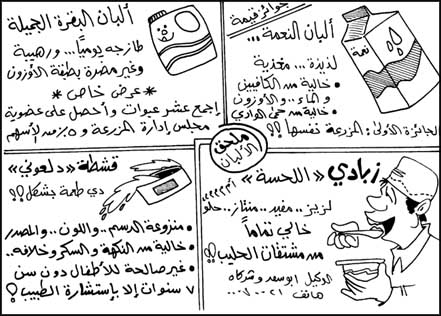 جوائز قيمة
ألبان النعمة...
لذيذة... مغذية
• خالية من الكافيين
• والماء.. والأوزون
• خالية من حمى الوادي
الجائزة الأولى: المزرعة نفسها!؟؟
نعمة
ألبان البقرة الجميلة
طازجه يوميا... ورهيبة
وغير مضرة بطبقة الأوزون
* عرض خاص *
إجمع عشر عبوات وأحصل على عضوية
مجلس إدارة المزرعة و ٥٪ من الأسهم
ملحق
الألبان
زبادي «اللحسة»
لزيز.. مفيد.. منتاز.. حلو
خالي تماما
من مشتقات الحليب!؟
الوكيل ابوسعد وشركاه
هاتف ٠٠٢١--٧٠٠
قشطة «دلعوني»
دي طعمة بشكل!؟؟
• منزوعة الدسم.. واللون.. والمصدر
• خالية من النكهة والسكر وخلافه..
• غير صالحة للأطفال دون سن
٧ سنوات إلا بإستشارة الطبيب!؟